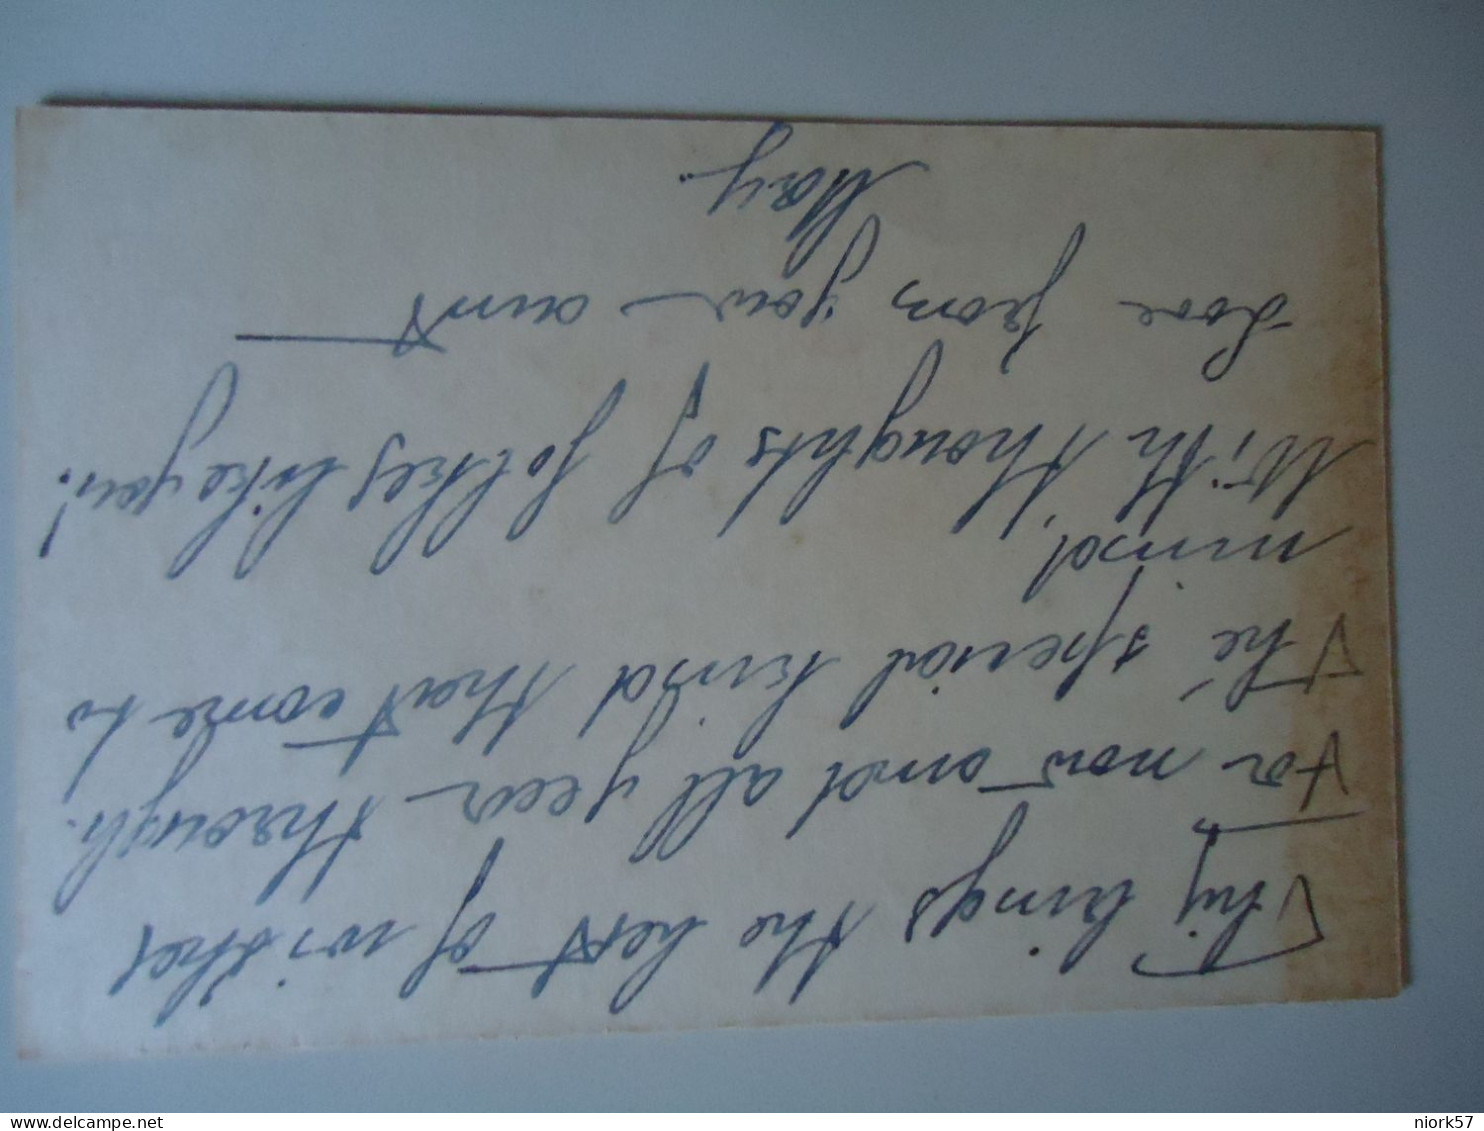 This brings the best of wishes
For now and all year through.
The special kind that come to
mind,
With thoughts of folkes like you!
Love from your aunt
Mary.
niork57